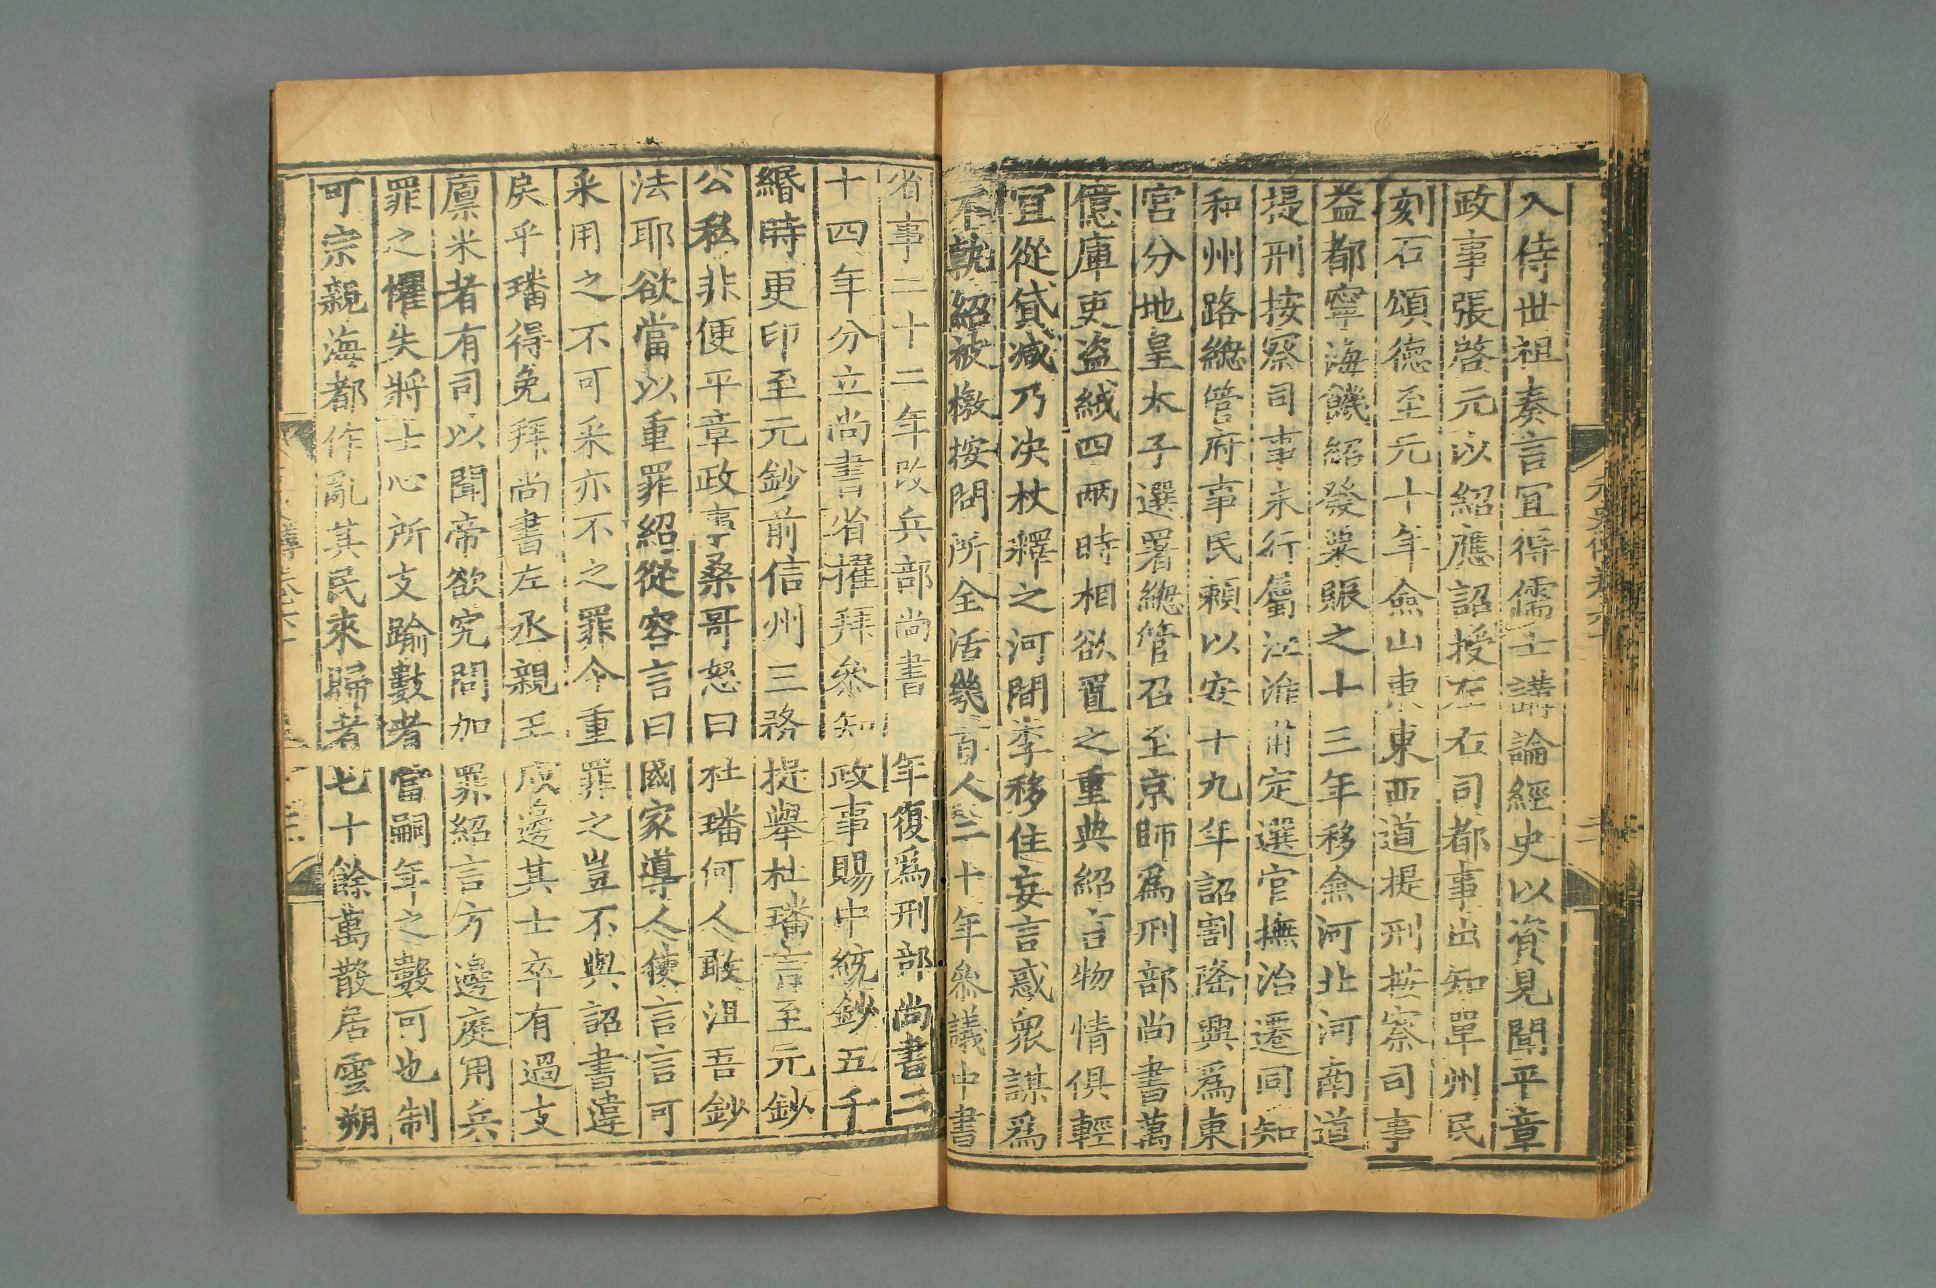 入侍世祖奏言宜得儒士講論經史以資見聞平章
政事張啓元以紹應詔授左右司都事出知單州民
刻石頌德至元十年僉山東東西道提刑按察司事
益都寧海饑紹發粟賑之十三年移僉河北河南道
提刑按察司事未行屬江淮甫定選官撫治遷同知
和州路緫管府事民賴以安十九年詔割隆興爲東
宮分地皇太子選署緫管召至京師爲刑部尚書萬
億庫吏盗絨四兩時相欲置之重典紹言物情俱輕
宜從貸减乃决杖釋之河間李移住妄言惑衆謀爲
不軌紹被檄按問所全活幾百人二十年叅議中書
省事二十二年改兵部尚書 年復爲刑部尚書二
十四年分立尚書省擢拜叅知政事賜中統鈔五千
緡時更印至元鈔前信州三務提舉杜璠言至元鈔
公私非便平章政事桑哥怒曰杜璠何人敢沮吾鈔
法耶欲當以重罪紹從容言曰國家導人使言言可
采用之不可采亦不之罪今重罪之豈不與詔書違
戾乎璠得免拜尚書左丞親王戍邊其士卒有過支
廪米者有司以聞帝欲究問加罪紹言方邊庭用兵
罪之懼失將士心所支踰數者當嗣年之數可也制
可宗親海都作亂其民來歸者七十餘萬散居雲朔